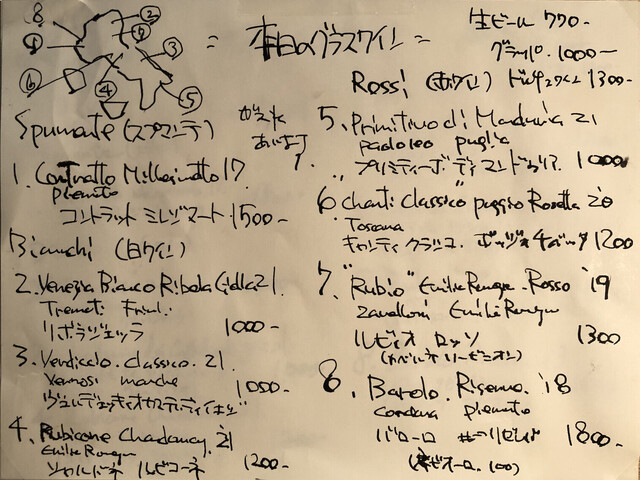 8 ② ① ④ ③ ⑥ ④ ⑤
= 本日のグラスワイン =
生ビール 770-
グラッパ 1000-
Spumante (スプマンテ)
1. Contratto Millesimato 17
Piemonte
コントラット ミレジマート 1500-
Bianchi (白ワイン)
2. Venezia Bianco Ribolla Gialla 21.
Friuli
リボラジェッラ 1000-
3. Verdicchio. classico. 21.
marche
1000-
4. Rubicone Chardonnay. 21
Emilia Romagna
シャルドネ ルビコーネ 1200-
Rossi (赤ワイン) 1300-
5. Primitivo di Manduria 21
paololeo puglia
"プリミティーボ ディ マンドゥリア 1000
6 chianti classico" poggio Rosetta 20
Toscana
キャンティ クラシコ. 1200
7. "Rubio" Emilia Romagna. Rosso '19
Zavalloni Emilia Romagna
ルビオ ロッソ 1300
8. Barolo. Riserva. '18
piemonte
バローロ 1800-